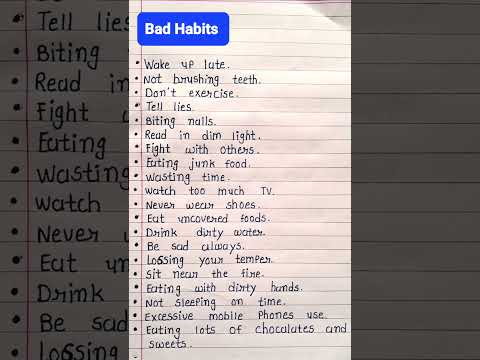 Bad Habits
• Wake up late.
• Not brushing teeth.
• Don't exercise.
• Tell lies.
• Biting nails.
• Read in dim light.
• Fight with others.
• Eating junk food.
• Wasting time.
• Watch too much TV.
• Never wear shoes.
• Eat uncovered foods.
• Drink dirty water.
• Be sad always.
• Lossing your temper.
• Sit near the fire.
• Eating with dirty hands.
• Not sleeping on time.
• Excessive mobile Phones use.
• Eating lots of chocalates and
sweets.
Tell lies
• Biting
• Read in
• Fight
• Eating
• Wasting
• Watch
• Never
• Eat un
• Drink
• Be sad
• Lossing